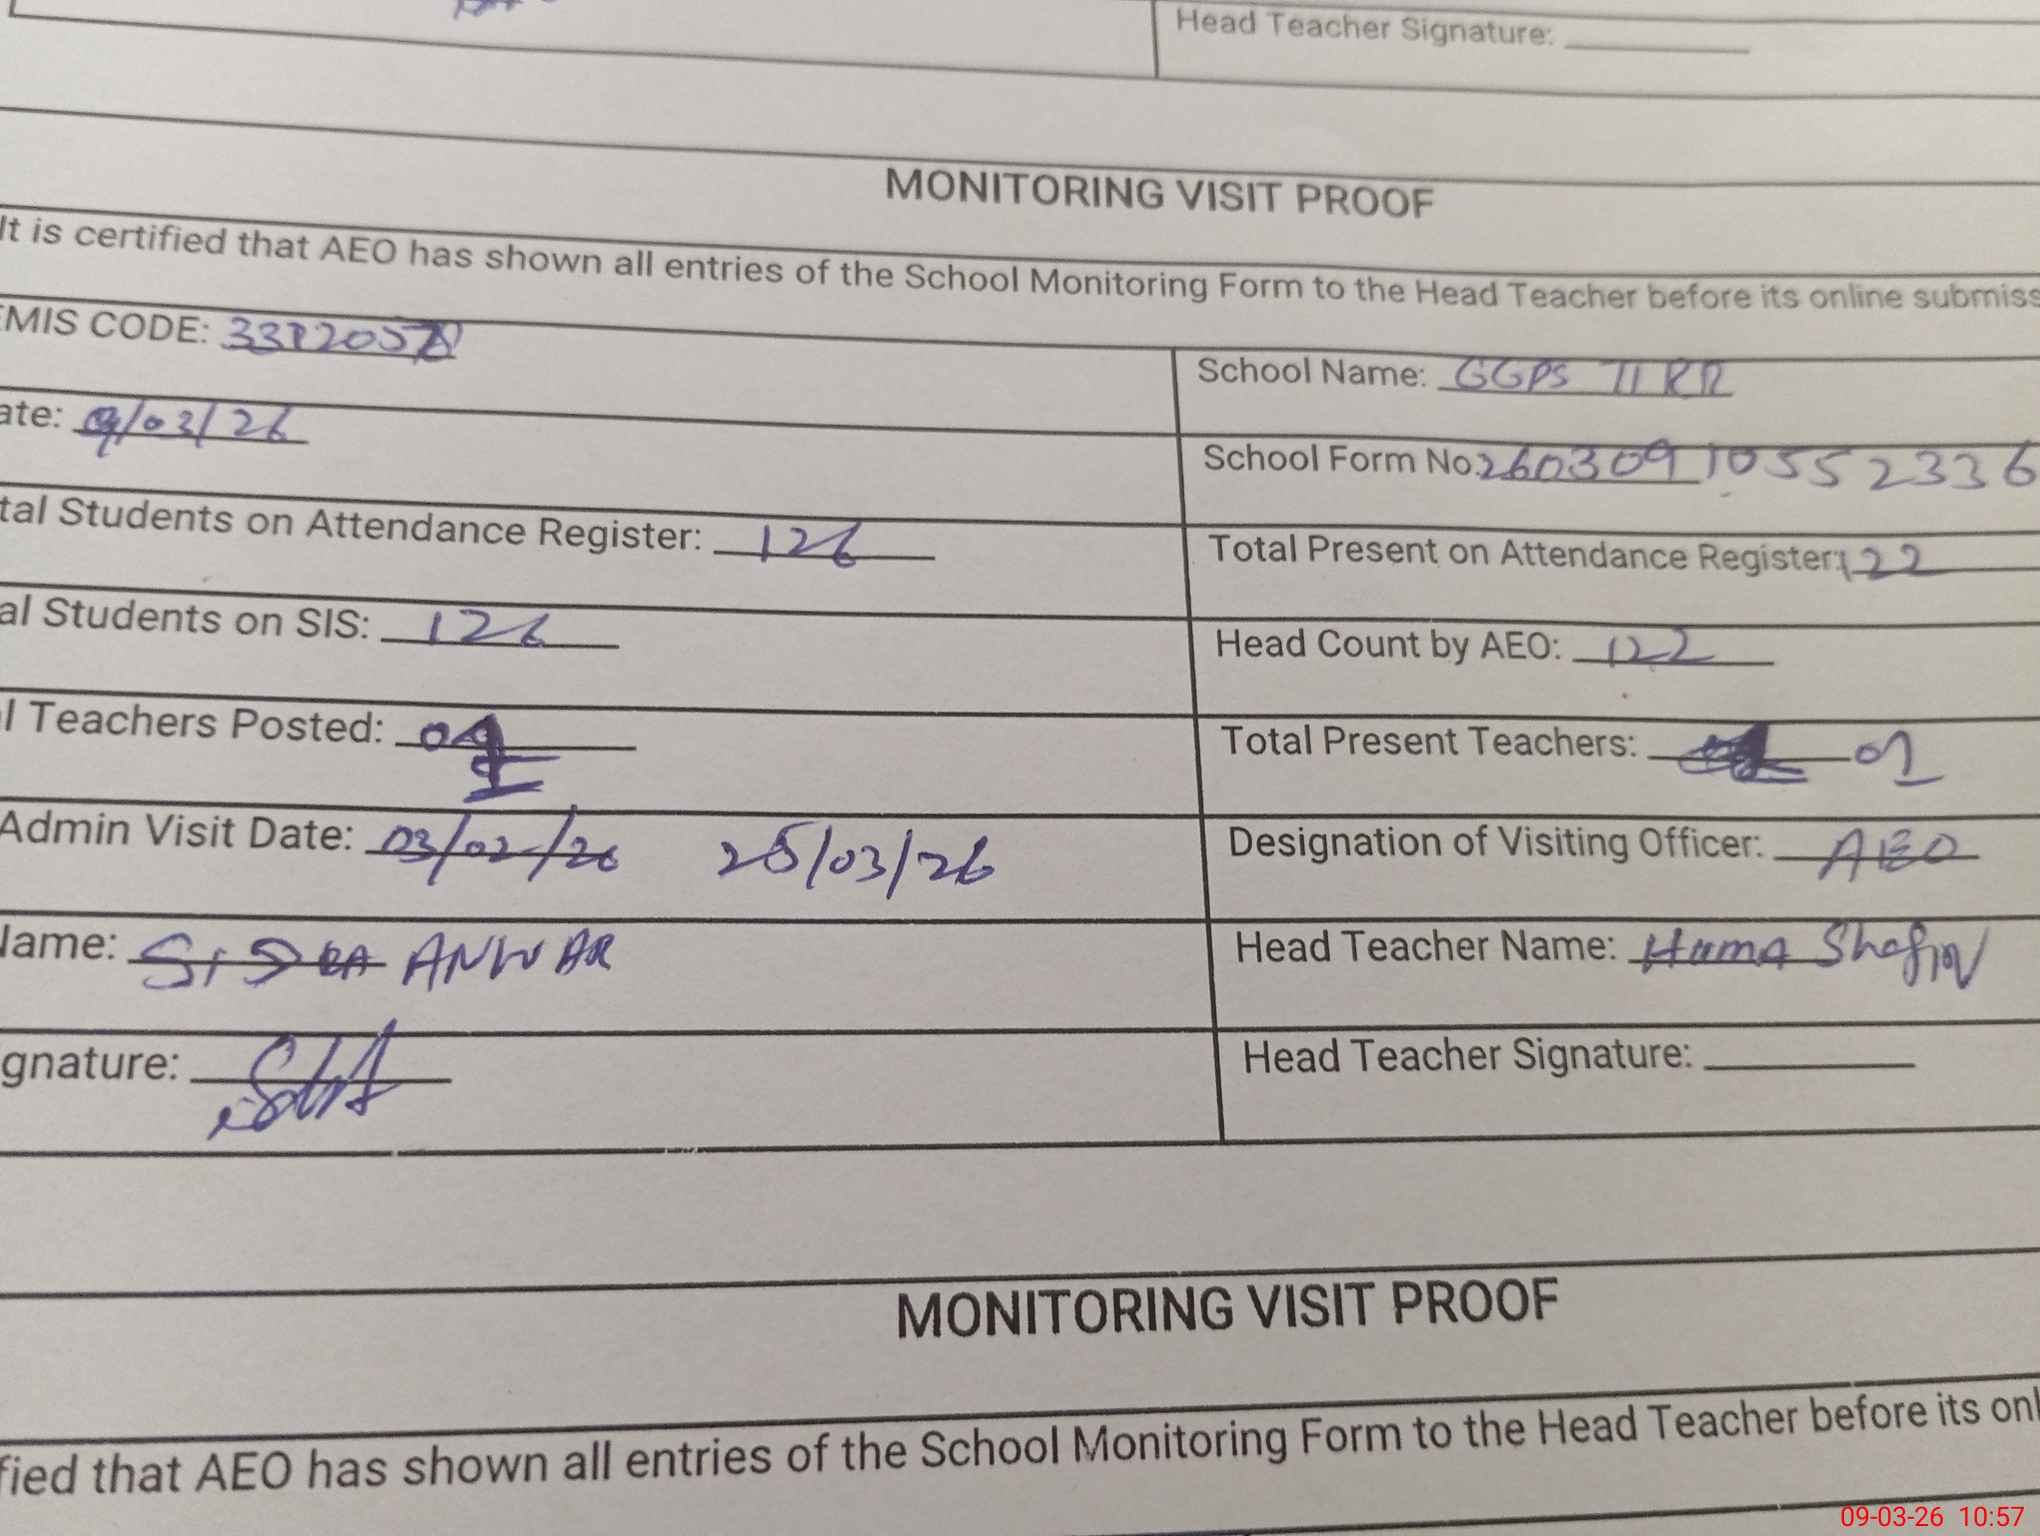 Head Teacher Signature:
MONITORING VISIT PROOF
It is certified that AEO has shown all entries of the School Monitoring Form to the Head Teacher before its online submiss
EMIS CODE:
School Name: GGPS
ate: 09/03/26
School Form No. 2603091055 2336
tal Students on Attendance Register: 126
Total Present on Attendance Register: 122
al Students on SIS: 126
Head Count by AEO: 122
l Teachers Posted:
Total Present Teachers: 01
Admin Visit Date: 03/02/26 25/03/26
Designation of Visiting Officer: AEO
Name: SIDRA ANWAR
Head Teacher Name: Huma
gnature:
Head Teacher Signature:
MONITORING VISIT PROOF
fied that AEO has shown all entries of the School Monitoring Form to the Head Teacher before its onl
09-03-26 10:57